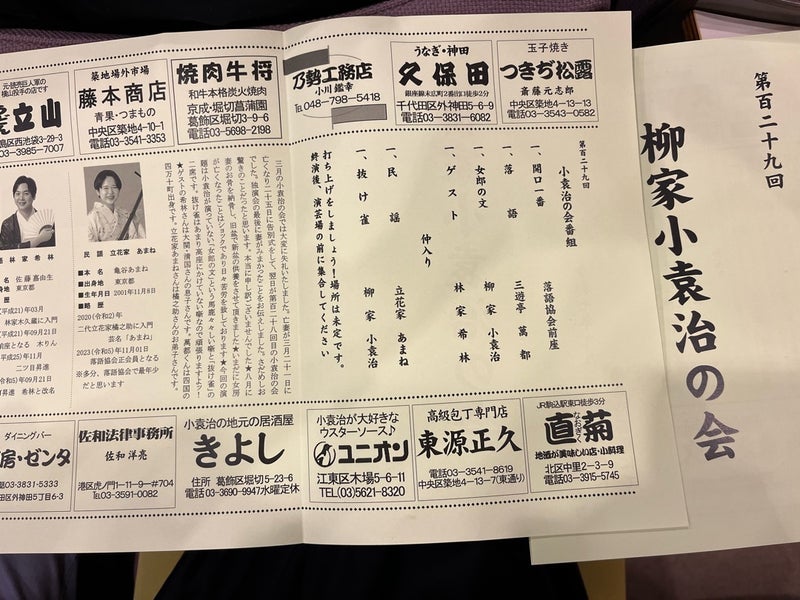 第百二十九回
柳家小袁治の会
元・読売巨人軍の
横山投手の店です
立山
島区西池袋3-29-3
03-3985-7007
築地場外市場
藤本商店
青果・つまもの
中央区築地4-10-1
電話03-3541-3353
焼肉牛将
和牛本格炭火焼肉
京成・堀切菖蒲園
葛飾区堀切3-9-6
電話03-5698-2198
乃勢工務店
小川 鑑幸
TEL 048-798-5418
うなぎ・神田
久保田
銀座線末広町2番出口徒歩2分
千代田区外神田5-6-9
電話03-3831-6082
玉子焼き
つきぢ松露
斎藤元志郎
中央区築地4-13-13
電話03-3543-0582
第百二十九回
小袁治の会番組
一、開口一番 落語協会前座
一、落語 三遊亭 萬都
一、女郎の文 柳家 小袁治
一、ゲスト 林家 希林
仲入り
一、民謡 立花家 あまね
一、抜け雀 柳家 小袁治
打ち上げをしましょう!場所は未定です。
終演後、演芸場の前に集合してください
三月の小袁治の会では大変に失礼いたしました。亡妻が三月二十一日に
亡くなり二十五日に告別式をして、翌日が第百二十八回目の小袁治の会
でした。独演会の最後に妻がみまかったことをお伝えしました。さだめしお
驚きのことだったと思います。本当に申し訳ございませんでした★八月に
妻のお骨を納骨し、旧盆で新盆の供養をさせて頂きました★いまだに女房
が亡くなったことはショックであり日々苦労を致しております★今回の演
題は小袁治が演っていない「女郎の文」という馬鹿々々しい噺と抜け雀の
二席です。抜け雀はあまり高座にかけていない噺なので頑張りますよッ!
★ゲストの希林さんは大関・清国さんの息子さんです。萬都くんは四国の
四万十町出身です。立花家あまねさんは橘之助さんのお弟子さんです。
民謡 立花家 あまね
■本名 亀谷あまね
■出身地 東京都
■生年月日 2001年11月8日
■略歴
2020(令和2)年
二代立花家橘之助に入門
芸名「あまね」
2023(令和5)年11月01日
落語協会正会員となる
※多分、落語協会で最年少
だと思います
落語 林家 希林
名 佐藤嘉由生
地 東京都
歴
(平成21)年03月
林家木久蔵に入門
(平成21)年09月21日
前座となる 木りん
(平成25)年11月
二ツ目昇進
(令和5)年09月21日
昇進 希林と改名
ダイニングバー
房・ゼンタ
話03-3831-5333
田区外神田5丁目6-3
佐和法律事務所
佐和 洋亮
港区虎ノ門1-11-9-#704
TEL03-3591-0082
小袁治の地元の居酒屋
きよし
住所 葛飾区堀切5-23-6
電話03-3690-9947水曜定休
小袁治が大好きな
ウスターソース♪
ユニオン
江東区木場5-6-11
TEL(03)5621-8320
高級包丁専門店
東源正久
電話03-3541-8619
中央区築地4-13-7(東通り)
JR駒込駅東口徒歩3分
直菊
なおぎく
地酒が美味しい店・小料理
北区中里2-3-9
電話03-3915-5745